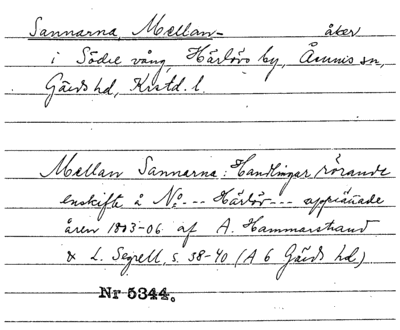 Sannarna, Mellan- åker
i Södre vång, Härlövs by, Åsumis sn,
Gärds hd, Krstd. l.
Mellan Sannarna: Handlingar rörande
enskifte å No --- Härlöv --- upprättade
åren 1803-06 af A. Hammarstrand
& L. Segrell, s. 38-40 (A 6 Gärds hd)
Nr 5344.